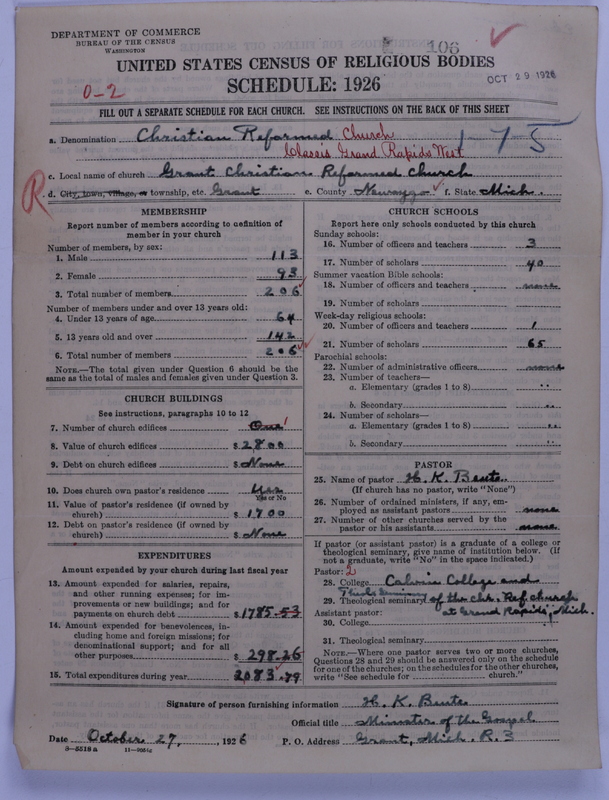 DEPARTMENT OF COMMERCE
BUREAU OF THE CENSUS
WASHINGTON
106
UNITED STATES CENSUS OF RELIGIOUS BODIES
SCHEDULE: 1926
OCT 29 1926
0-2
FILL OUT A SEPARATE SCHEDULE FOR EACH CHURCH. SEE INSTRUCTIONS ON THE BACK OF THIS SHEET
a. Denomination Christian Reformed Church 1-75
Classis Grand Rapids West
c. Local name of church Grant Christian Reformed Church
R
d. City, town, village, or township, etc. Grant e. County Newaygo f. State Mich.
MEMBERSHIP
Report number of members according to definition of member in your church
Number of members, by sex:
1. Male 113
2. Female 93
3. Total number of members 206
Number of members under and over 13 years old:
4. Under 13 years of age 64
5. 13 years old and over 142
6. Total number of members 206
NOTE.—The total given under Question 6 should be the
same as the total of males and females given under Question 3.
CHURCH BUILDINGS
See instructions, paragraphs 10 to 12
7. Number of church edifices One 1
8. Value of church edifices $2800
9. Debt on church edifices $None
10. Does church own pastor's residence Yes
Yes or No
11. Value of pastor's residence (if owned by
church) $1700
12. Debt on pastor's residence (if owned by
church) $None
EXPENDITURES
Amount expended by your church during last fiscal year
13. Amount expended for salaries, repairs,
and other running expenses; for im-
provements or new buildings; and for
payments on church debt $1785.53
14. Amount expended for benevolences, in-
cluding home and foreign missions; for
denominational support; and for all
other purposes $298.26
15. Total expenditures during year 2083.79
CHURCH SCHOOLS
Report here only schools conducted by this church
Sunday schools:
16. Number of officers and teachers 3
17. Number of scholars 40
Summer vacation Bible schools:
18. Number of officers and teachers none
19. Number of scholars
Week-day religious schools:
20. Number of officers and teachers 1
21. Number of scholars 65
Parochial schools:
22. Number of administrative officers none
23. Number of teachers—
a. Elementary (grades 1 to 8) "
b. Secondary "
24. Number of scholars—
a. Elementary (grades 1 to 8) "
b. Secondary "
PASTOR
25. Name of pastor H. K. Bente
(If church has no pastor, write "None")
26. Number of ordained ministers, if any, em-
ployed as assistant pastors none
27. Number of other churches served by the
pastor or his assistants none
If pastor (or assistant pastor) is a graduate of a college or
theological seminary, give name of institution below. (If
not a graduate, write "No" in the space indicated.)
Pastor: 2
28. College Calvin College and
29. Theological seminary Theol. Seminary of the Chr. Ref church
Assistant pastor: at Grand Rapids, Mich.
30. College
31. Theological seminary
NOTE.—Where one pastor serves two or more churches,
Questions 28 and 29 should be answered only on the schedule
for one of the churches; on the schedules for the other churches,
write "See schedule for church."
Signature of person furnishing information H. K. Bente
Official title Minister of the Gospel
Date October 27, 1926 P. O. Address Grant, Mich. R. 3
8-5518a